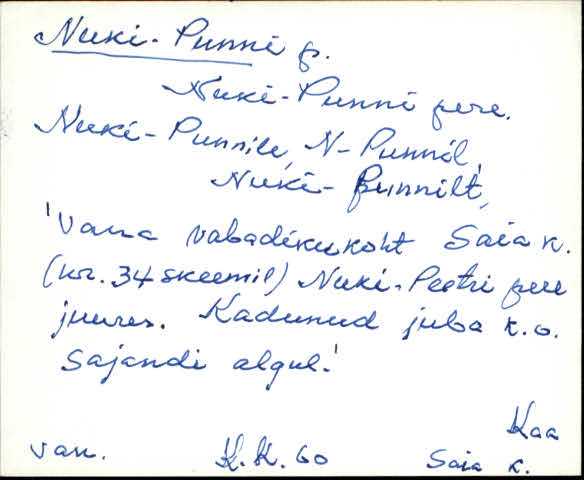 Nuki-Punni p.
Nuki-Punni pere.
Nuki-Punnile, N-Punnil,
Nuki-Punnilt,
'Vana vabadikukoht Saia k.
(nr. 34 skeemil) Nuki-Peetri pere
juures. Kadunud juba k.o.
sajandi algul.'
Kaa
van. K.K. 60 Saia k.